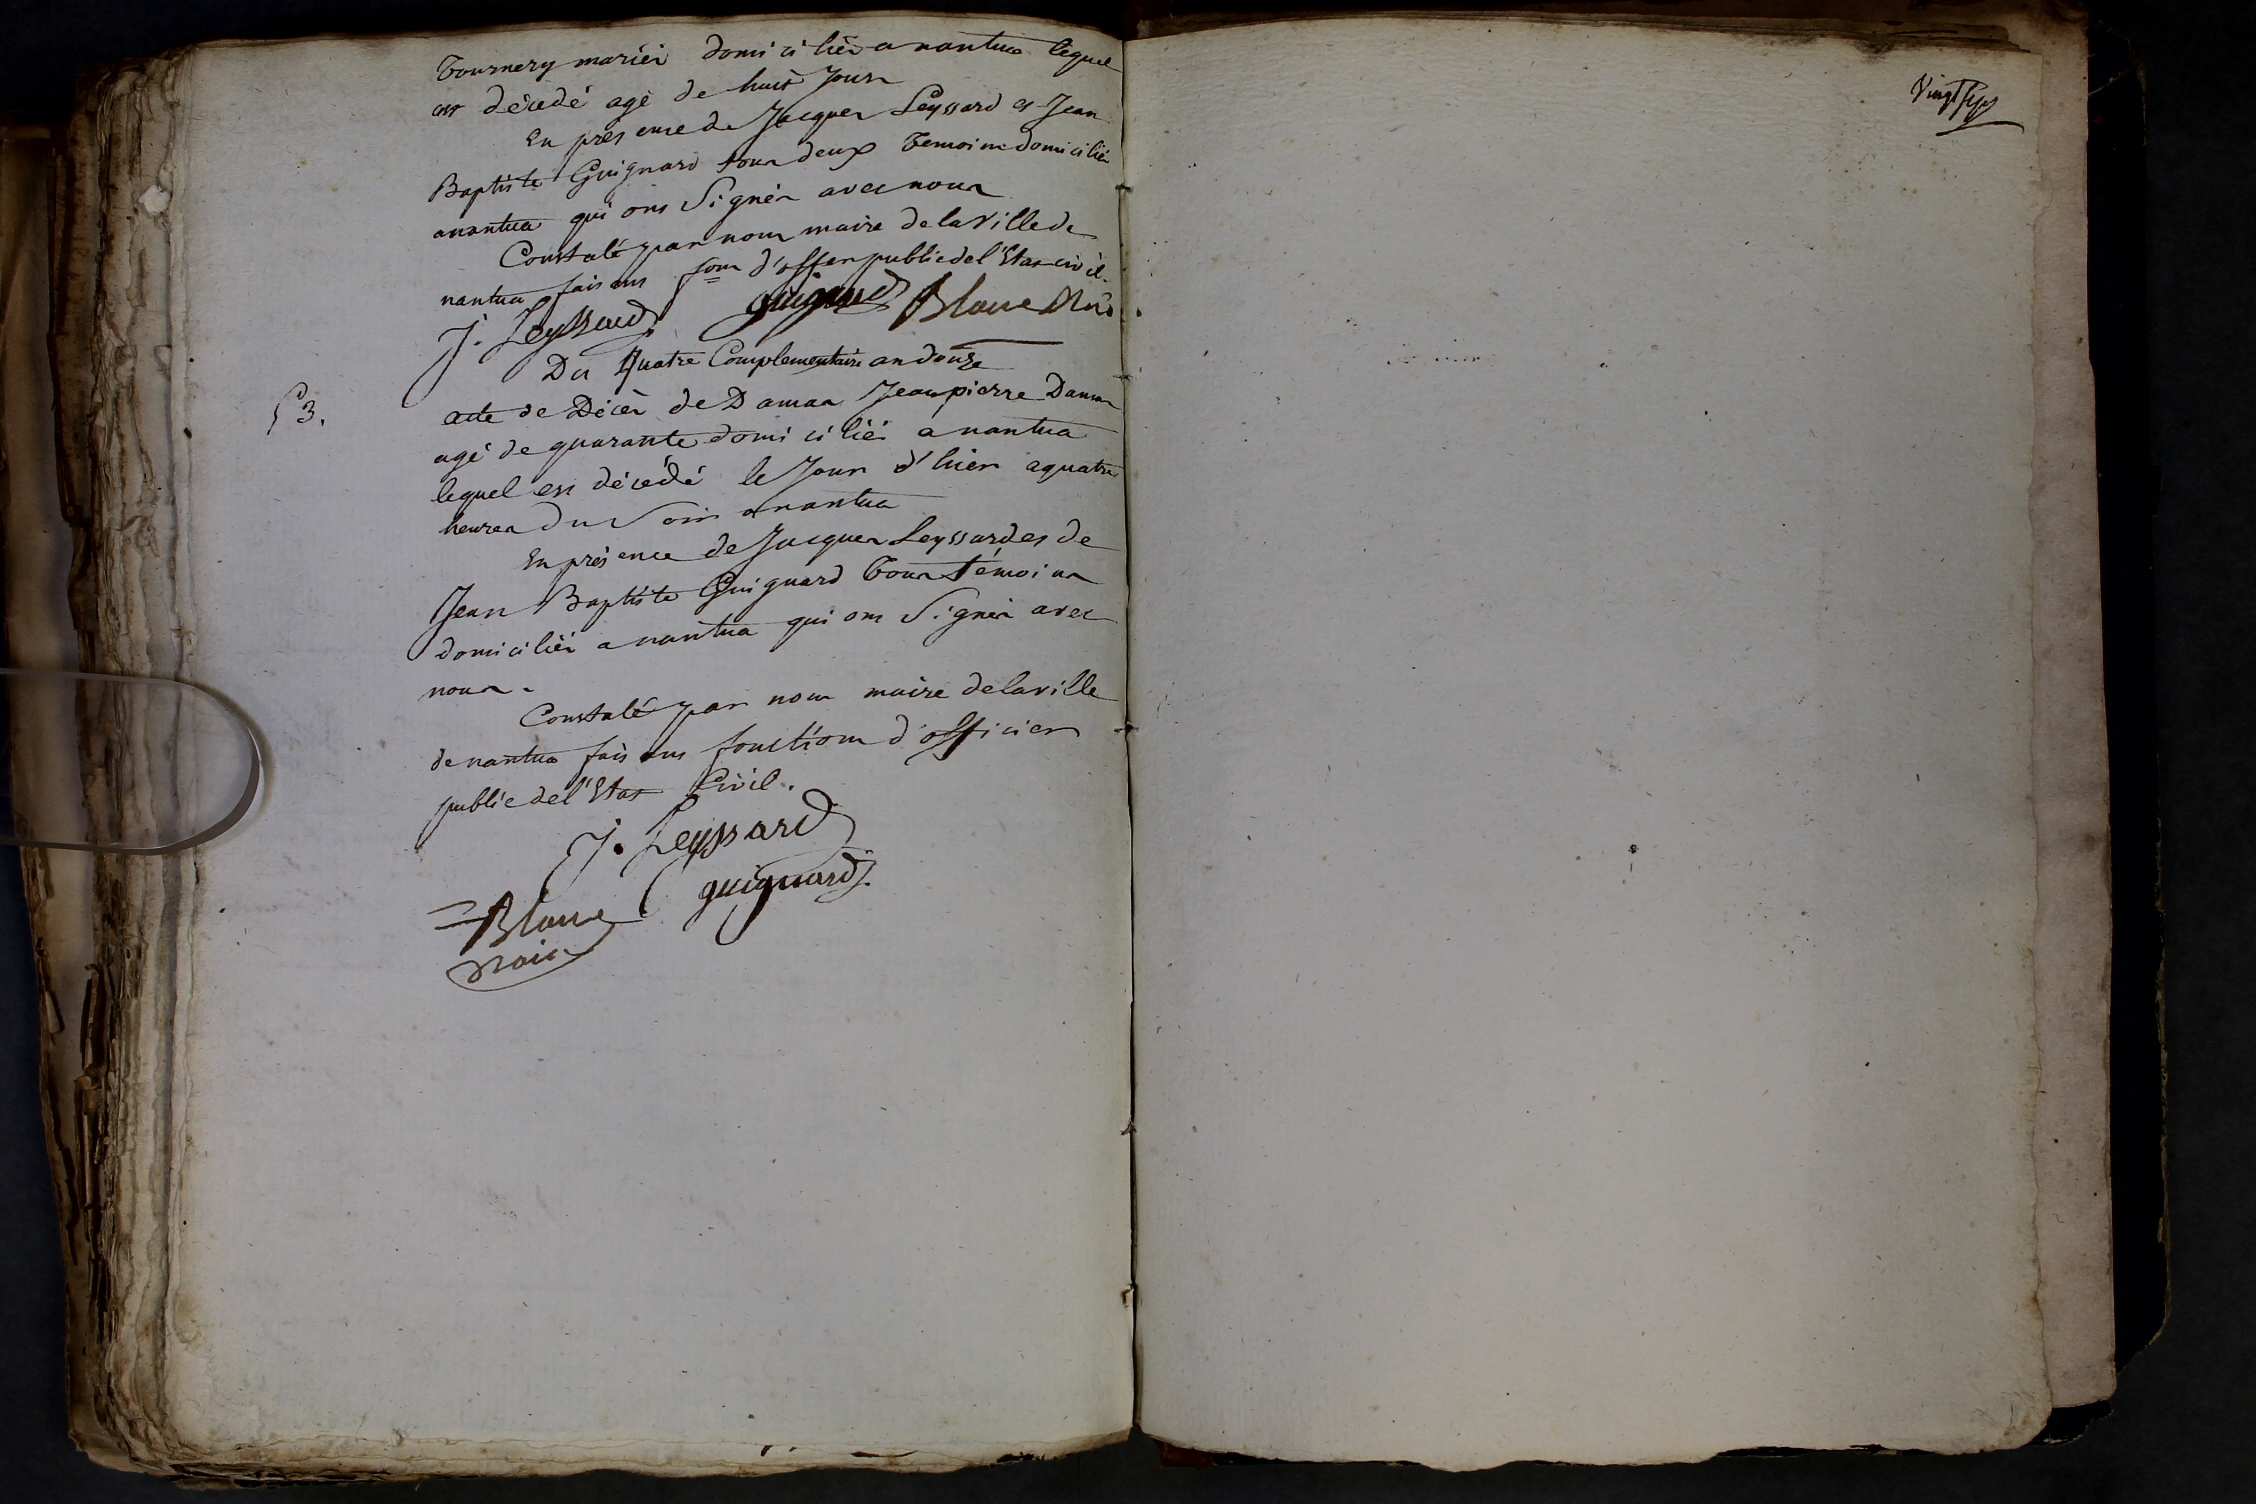 Tournery mariés domiciliés a nantua lequel
est décédé agé de huit Jours
En présence de Jacques Leyssard et Jean
Baptiste Guignard tous deux Temoins domiciliés
anantua qui ont Signés avec nous
Constaté par nous maire de la Ville de
nantua faisant fons d'offier public de l'Etat civil.
J. Leyssard guignard Blanc
Du Quatre Complementaire an douze
53.
acte de Décès de Damas Jean pierre Damas
agé de quarante domicilié a nantua
lequel est décédé le Jour d'hier a quatre
heures du Soir a nantua
En présence de Jacques Leyssard et de
Jean Baptiste Guignard Tous témoins
domiciliés a nantua qui ont Signés avec
nous.
Constaté par nous maire de la ville
de nantua faisant fonctions d'officier
public de l'Etat Civil.
J. Leyssard
guignard
Blanc
Vingt